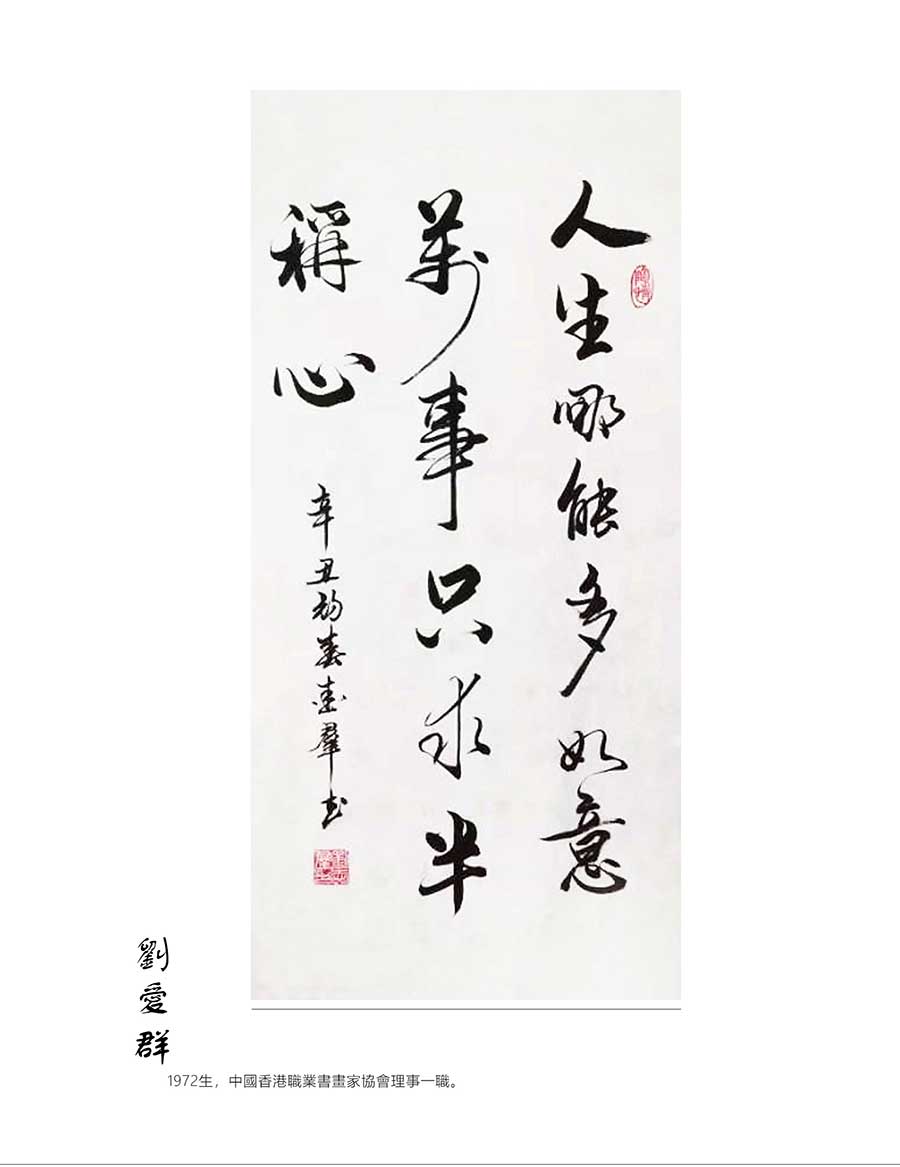 人生哪能多如意
萬事只求半
稱心
辛丑初春愛羣书
劉愛群
1972生，中國香港職業書畫家協會理事一職。